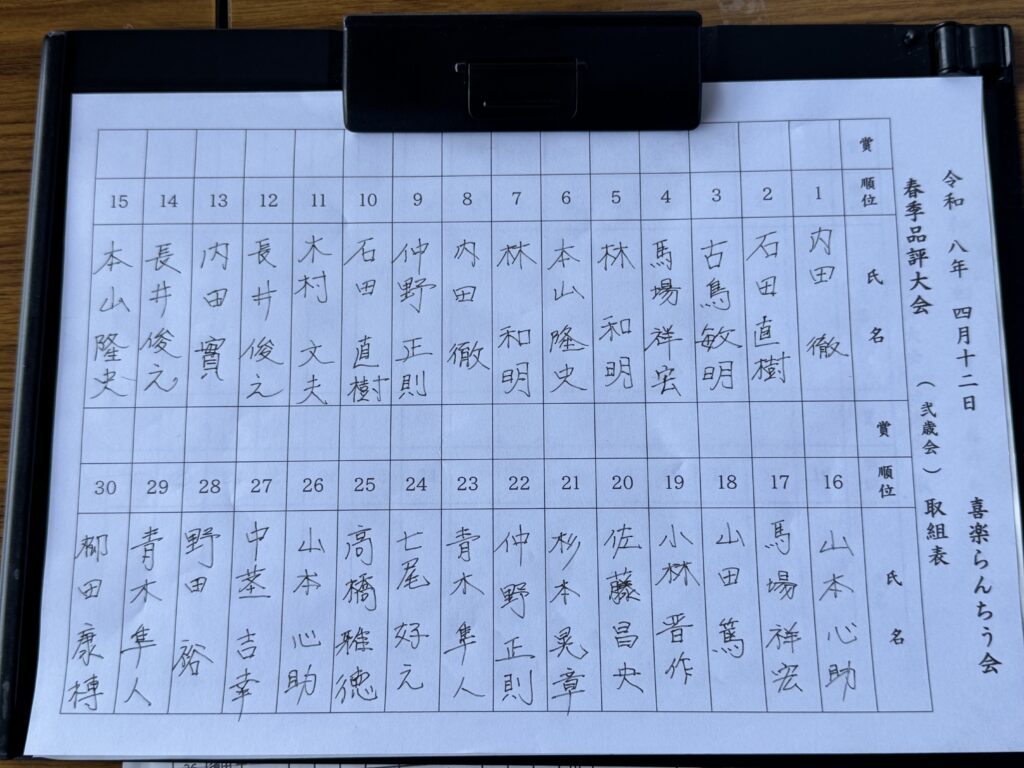 令和 八年 四月十二日 喜楽らんちう会
春季品評大会 （弐歳会） 取組表
賞 順位 氏名
1 内田 徹
2 石田直樹
3 古鳥敏明
4 馬場祥宏
5 林 和明
6 本山隆史
7 林 和明
8 内田 徹
9 仲野正則
10 石田直樹
11 木村文夫
12 長井俊之
13 内田 實
14 長井俊之
15 本山隆史
賞 順位 氏名
16 山本心助
17 馬場祥宏
18 山田 篤
19 小林晋作
20 佐藤昌央
21 杉本晃章
22 仲野正則
23 青木隼人
24 七尾好之
25 高橋雅徳
26 山本心助
27 中茎吉幸
28 野田 裕
29 青木隼人
30 田康